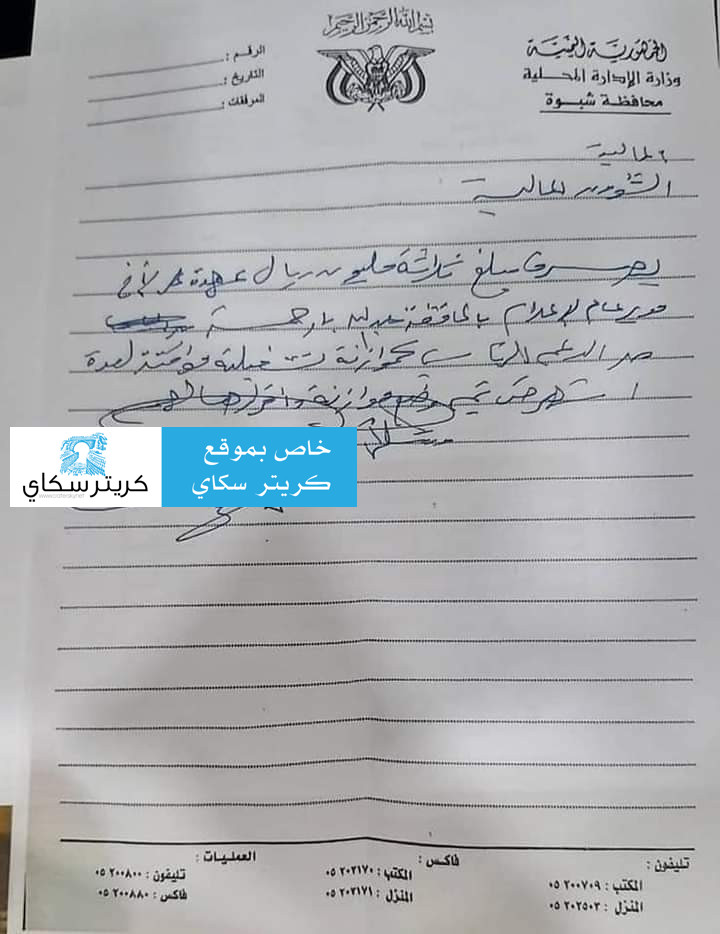 بسم الله الرحمن الرحيم
الجمهورية اليمنية
وزارة الإدارة المحلية
محافظة شبوة
الرقم :
التاريخ :
المرفقات :
المالية
الشؤون المالية
يصرف مبلغ ثلاثة مليون ريال عهدة على الأخ
مدير عام الإعلام بالمحافظة
الدعم كموازنة تشغيلية مؤقتة لمدة
موازنة
خاص بموقع
كريتر سكاي
كريتر سكاي
تليفون :
المكتب : ٠٥ ٢٠٠٧٠٩
المنزل : ٠٥ ٢٠٢٥٠٢
فاكس :
المكتب : ٠٥ ٢٠٢١٧٠
المنزل : ٠٥ ٢٠٢١٧١
العمليات :
تليفون : ٠٥ ٢٠٠٨٠٠
فاكس : ٠٥ ٢٠٠٨٨٠